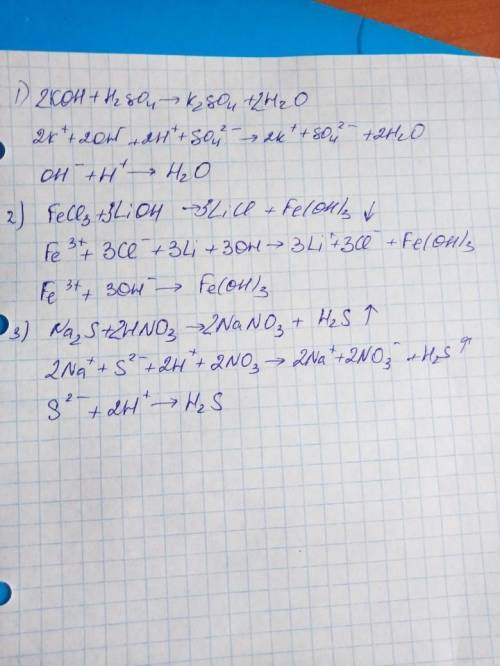 1) 2KOH + H₂SO₄ → K₂SO₄ + 2H₂O
2K⁺ + 2OH + 2H⁺ + SO₄²⁻ → 2K⁺ + SO₄²⁻ + 2H₂O
OH⁻ + H⁺ → H₂O
2) FeCl₃ + 3LiOH → 3LiCl + Fe(OH)₃ ↓
Fe³⁺ + 3Cl⁻ + 3Li + 3OH → 3Li⁺ + 3Cl⁻ + Fe(OH)₃
Fe³⁺ + 3OH⁻ → Fe(OH)₃
3) Na₂S + 2HNO₃ → 2NaNO₃ + H₂S ↑
2Na⁺ + S²⁻ + 2H⁺ + 2NO₃ → 2Na⁺ + 2NO₃⁻ + H₂S ↑
S²⁻ + 2H⁺ → H₂S